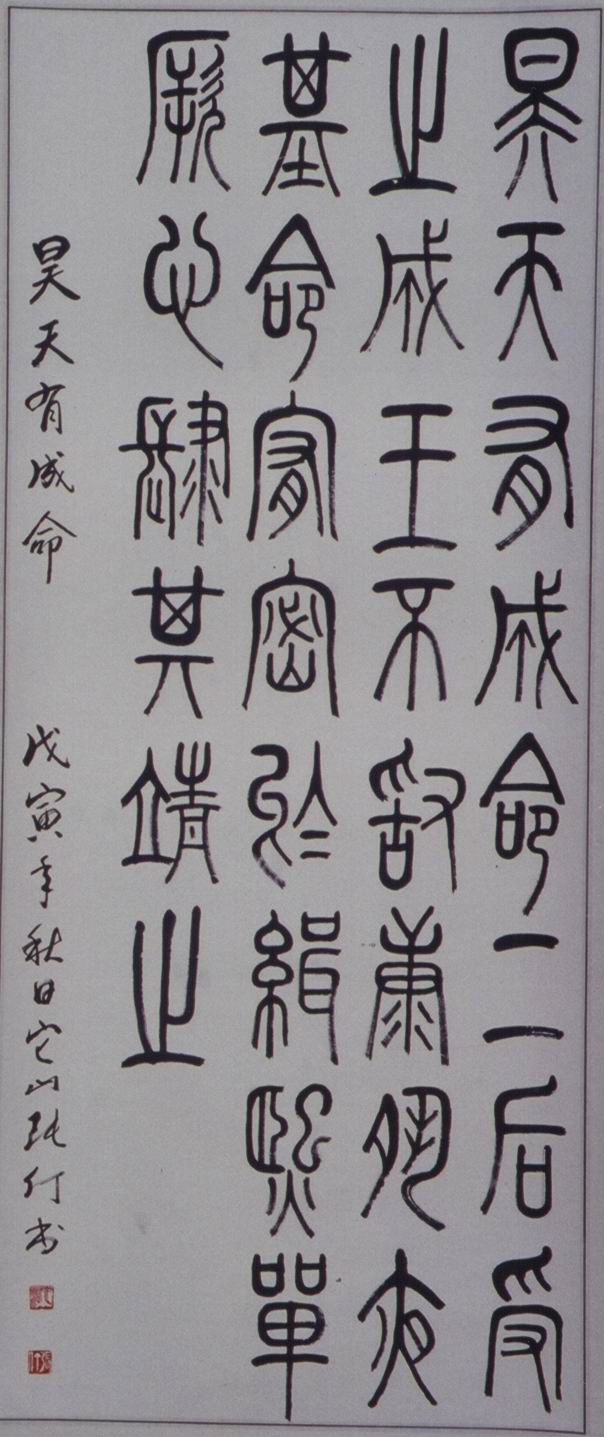 昊天有成命二后受
之成王不敢康夙夜
基命宥密於緝熙單
厥心肆其靖之
昊天有成命 戊寅年秋日它山张仃书